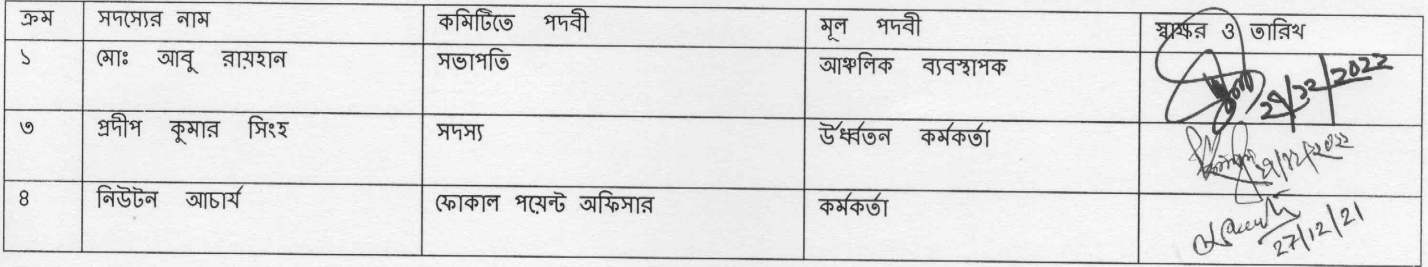 ক্রম সদস্যের নাম কমিটিতে পদবী মূল পদবী স্বাক্ষর ও তারিখ
১ মোঃ আবু রায়হান সভাপতি আঞ্চলিক ব্যবস্থাপক
৩ প্রদীপ কুমার সিংহ সদস্য উর্ধ্বতন কর্মকর্তা
৪ নিউটন আচার্য ফোকাল পয়েন্ট অফিসার কর্মকর্তা 27/12/21